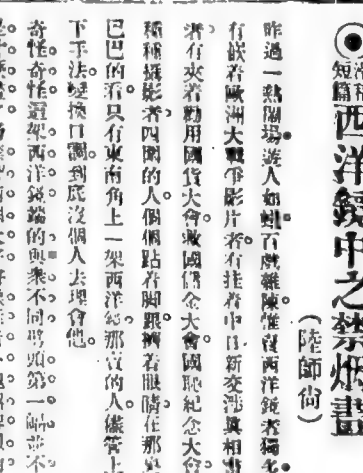 滑稽短篇 西洋鏡中之禁烟畫
(陸師尚)
昨過一熱鬧塲遊人如蟻百戲雜陳惟有西洋鏡者獨多
有嵌着歐洲大戰爭影片者有挂着中日新交涉眞相
者有夾着勸用國貨大會救國儲金大會國恥紀念大會
種種攝影者四圍的人個個點着脚跟睜着眼睛在那
巴巴的看只有東南角上一架西洋鏡那賣的人儘管上
下手法變換口調到底沒個人去理會他
奇怪奇怪這架西洋鏡端的與衆不同劈頭第一幅並不